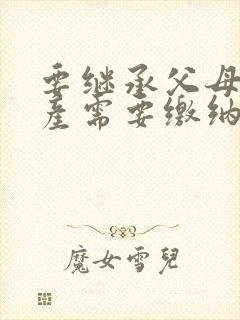 要继承父母
产需要缴纳
魔女雪兒